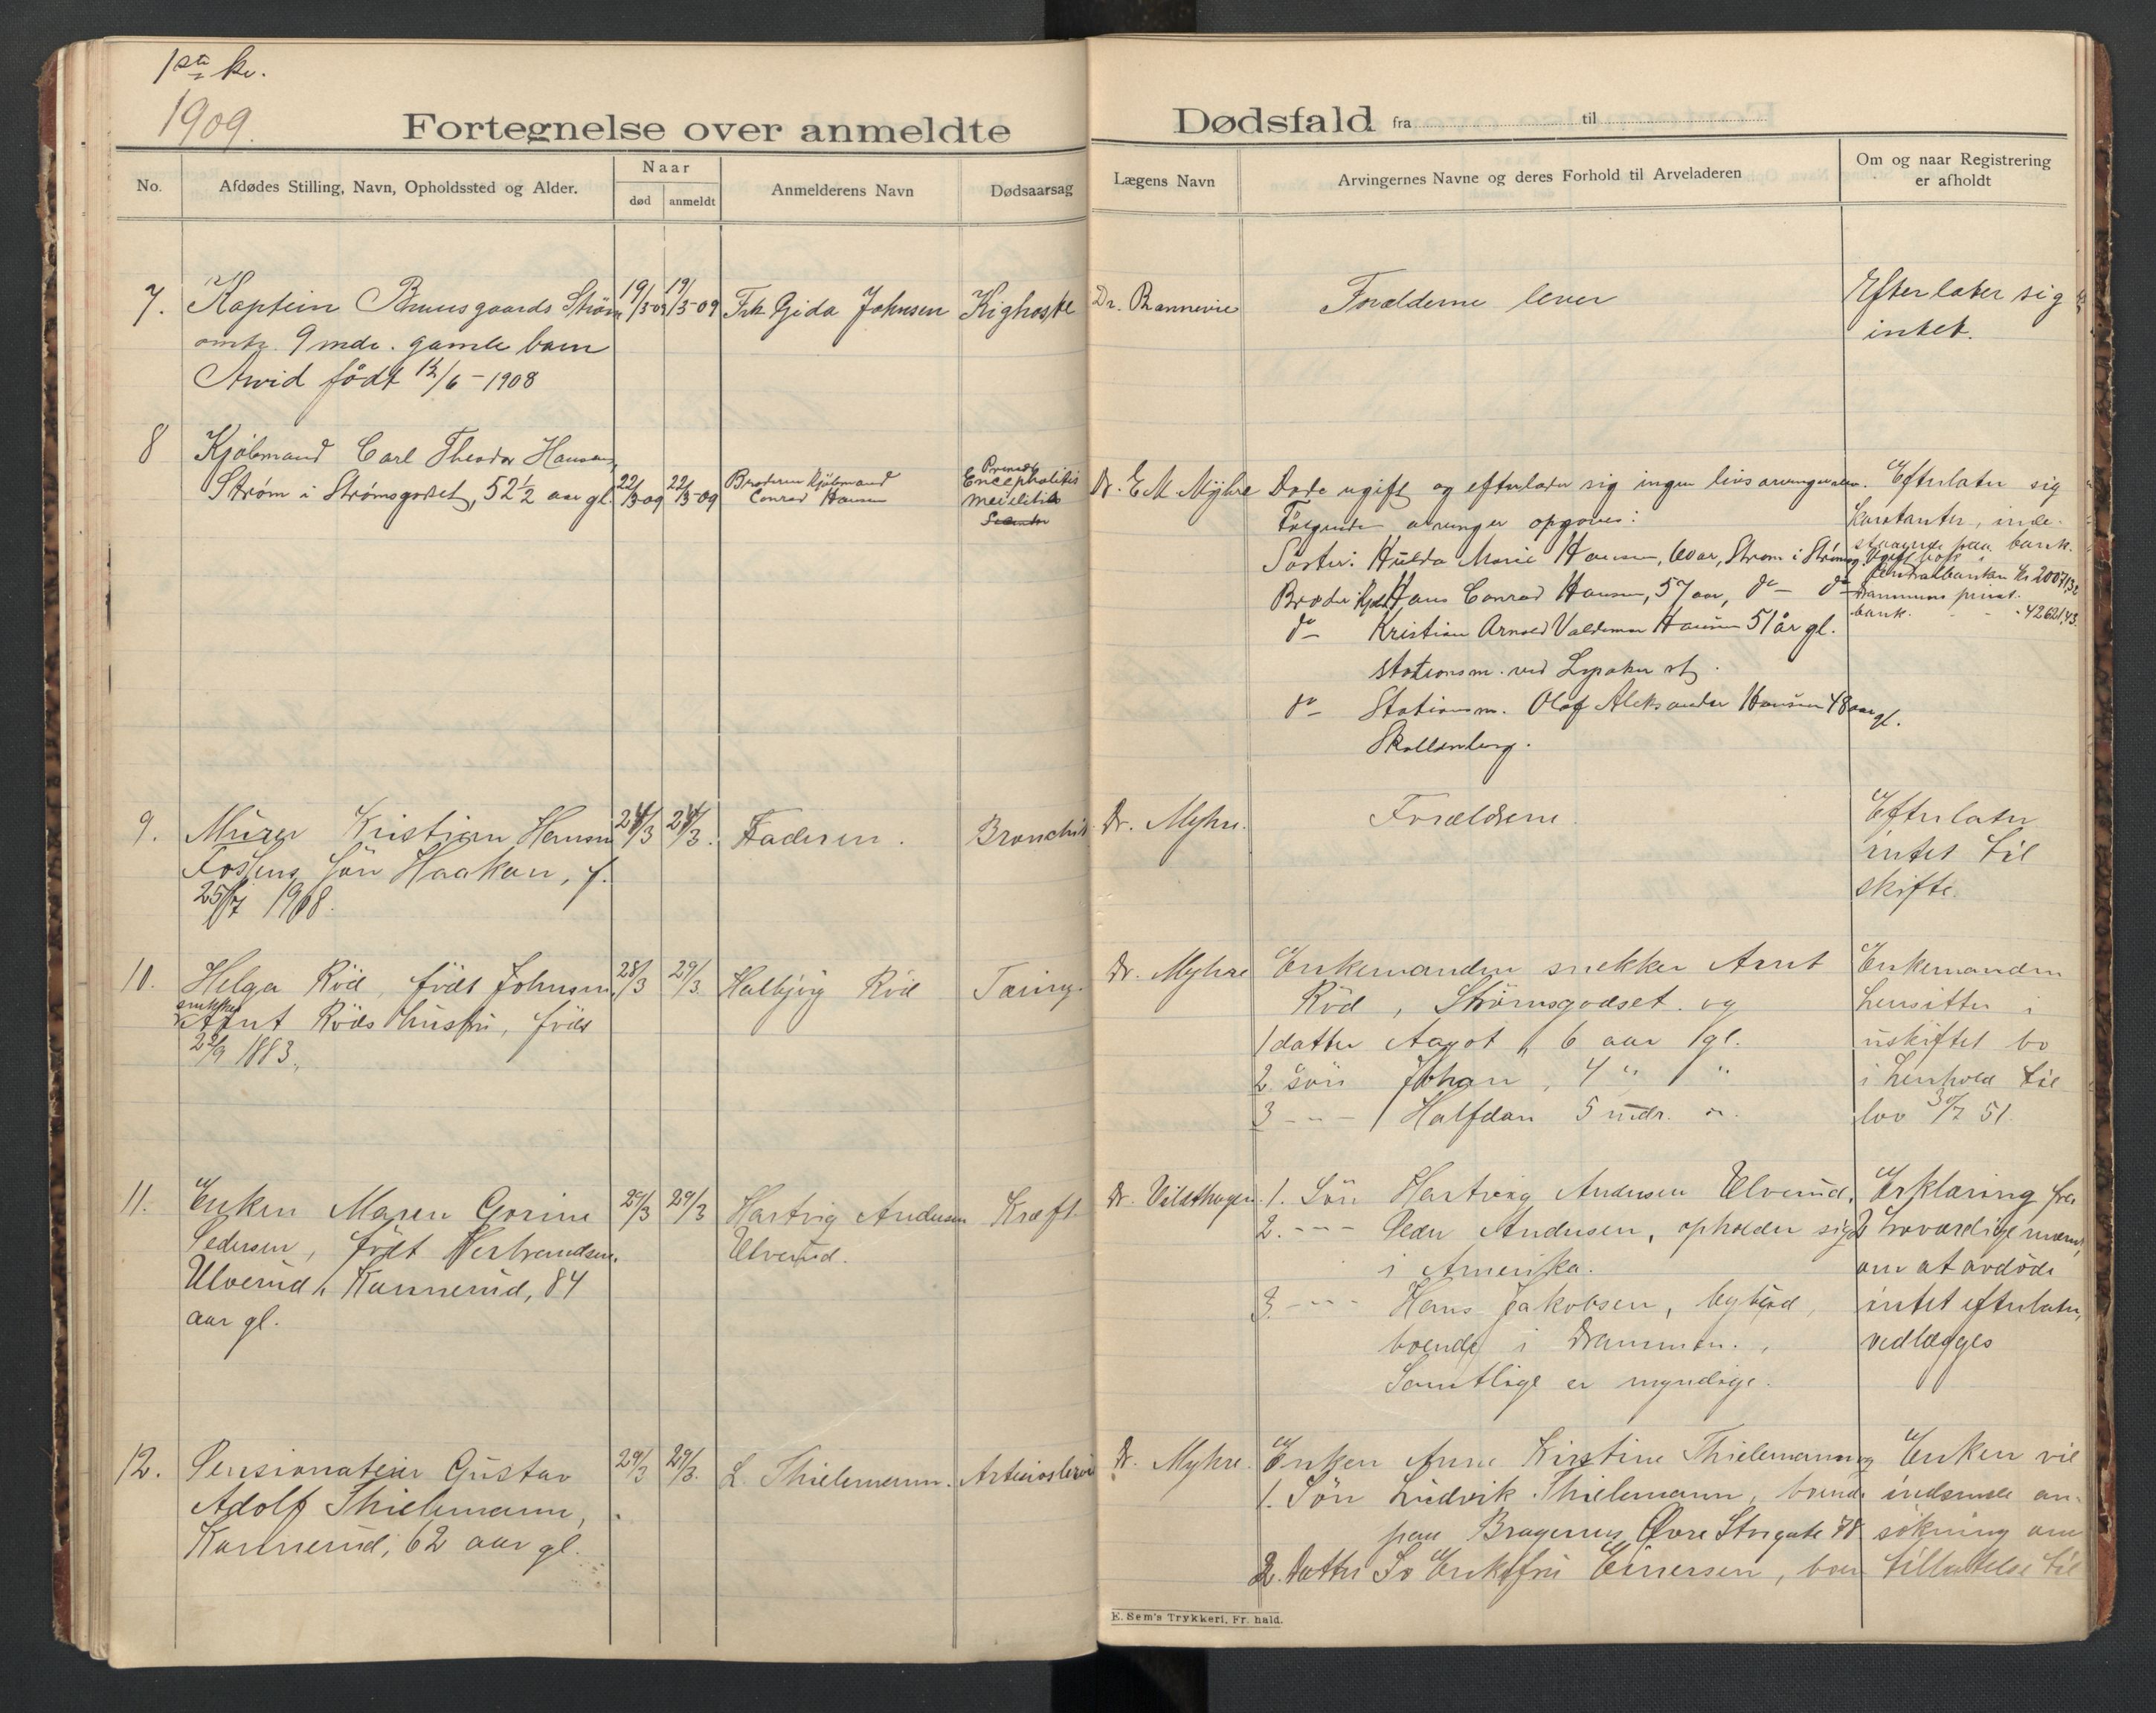 1ste kv.
1909.
Fortegnelse over anmeldte Dødsfald fra til
No.
Afdødes Stilling, Navn, Opholdssted og Alder.
Naar
død
anmeldt
Anmelderens Navn
Dødsaarsag
Lægens Navn
Arvingernes Navne og deres Forhold til Arveladeren
Om og naar Registrering
er afholdt
7. Kaptein Bruusgaards Strøm
omtr. 9 mdr. gamle barn
Arvid født 12/6-1908
19/3-09
19/3-09
Frk Gida Johnsen
Kighoste
Dr.
Forælderne lever
Efterlater sig
intet.
8 Kjøbmand Carl Theodor Hansen,
Strøm i Strømsgodset, 52 1/2 aar gl.
22/3-09
22/3-09
Broderen Kjøbmand
Conrad Hansen
Encepholitis
Dr. E M Myhre
Døde ugift og efterlader sig ingen livsarvinger
Følgende arvinger opgives:
Søster: Hulda Marie Hansen, 60 aar, Strøm i Strømsg.
Broder Kjøbm Hans Conrad Hansen, 57 aar, do- do-
do- Kristian Arnold Valdemar Hansen 51 år gl.
stationsm. ved st.
do- Stationsm. Olaf Aleksander Hansen 48 aar gl.
Skollenborg.
Efterlater sig
kontanter, inde-
staaende paa bank.
Centralbanken Kr 20071,32
Drammens privat.
bank. - - - 42621,43.
9. Murer Kristian Hansen
Fossens søn Haakon, f.
25/7 1908.
24/3
24/3.
Faderen.
Bronchit
Dr. Myhre.
Forældrene.
Efterlater
intet til
skifte.
10. Helga Röd, födt Johnsen,
snekker
Arnt Röds hustru, födt
22/9 1883.
28/3
29/3.
Halbjörg Röd
Tæring.
Dr. Myhre
Enkemanden snekker Arnt
Röd, Strømsgodset. og
1 datter Aagot, 6 aar gl.
2 sön Johan, 4 " "
3 - " - Halfdan 5 mdr. "
Enkemanden
hensitter i
uskiftet bo
i henhold til
lov 30/7 51.
11. Enken Maren Gorine
Pedersen, födt Herbrandsen,
Ulverud, Konnerud, 84
aar gl.
29/3
29/3
Hartvig Andersen
Ulverud.
Kræft
Dr. Vildthagen.
1. Sön Hartvig Andersen Ulverud,
2. - " - Peder Andersen, opholder sig
i Amerika.
3. - " - Hans Jakobsen, bybud,
boende i Drammen.
Samtlige er myndige.
Erklæring fra
2 troværdige mænd,
om at avdöde
intet efterlater,
vedlægges
12. Pensionatejer Gustav
Adolf Thielemann,
Konnerud, 62 aar gl.
29/3
29/3.
L. Thielemann.
Arteriosklero
Dr. Myhre.
Enken Anne Kirstine Thielemann og
1. Sön Ludvik Thielemann, boende
paa Bragernes Övre Storgate 78
2. Datter Enkefru Einersen, boen
Enken vil
indsende an-
sökning om
tilladelse til
E. Sem's Trykkeri, Fr. hald.